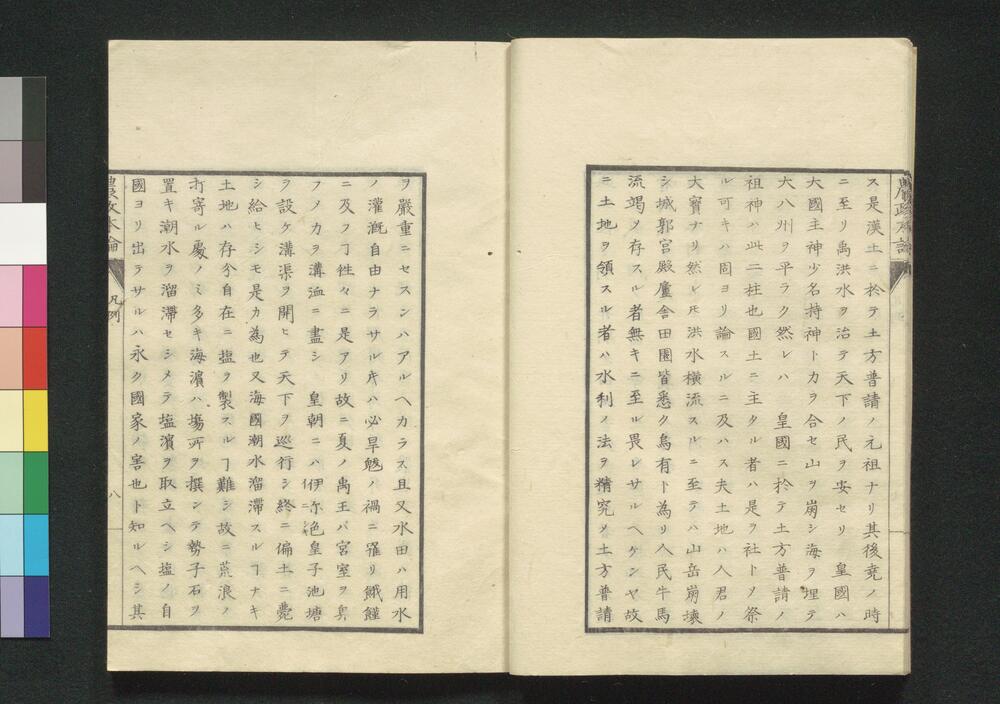 ス是漢土ニ於テ土方普請ノ元祖ナリ其後堯ノ時
ニ至リ禹洪水ヲ治テ天下ノ民ヲ安セリ　皇國ハ
大國主神少名持神ト力ヲ合セ山ヲ崩シ海ヲ埋テ
大八州ヲ平ラク然レハ　皇國ニ於テ土方普請ノ
祖神ハ此二柱也國土ニ主タル者ハ是ヲ社トメ祭
ル可キハ固ヨリ論スルニ及ハス夫土地ハ人君ノ
大寳ナリ然レ𪜈洪水横流スルニ至テハ山岳崩壊
シ城郭宮殿廬舎田園皆悉ク烏有ト為リ人民牛馬
流竭メ存スル者無キニ至ル畏レサルヘケンヤ故
ニ土地ヲ領スル者ハ水利ノ法ヲ精究メ土方普請
農政本論
ヲ嚴重ニセスンハアルヘカラス且又水田ハ用水
ノ灌漑自由ナラサル片ハ必旱魃ノ禍ニ罹リ餓饉
ニ及フヿ徃々ニ是アリ故ニ夏ノ禹王バ宮室ヲ卑
フメカヲ溝洫ニ盡シ　皇朝ニハ伊尓色皇子池塘
ニシキ
ヲ設ケ溝渠ヲ開ヒテ天下ヲ巡行シ終ニ偏土ニ薨
シ給ヒシモ是カ為也又海國潮水溜滞スルヿナキ
土地ハ存分自在ニ塩ヲ製スルヿ難シ故ニ荒浪ノ
打寄ル處ノミ多キ海濵ハ塲所ヲ撰ンテ勢子石ヲ
置キ潮水ヲ溜滞セシメテ塩濵ヲ取立ヘシ塩ノ自
國ヨリ出ラサルハ永ク國家ノ害也ト知ルヘシ其
農政本論
凡例
八